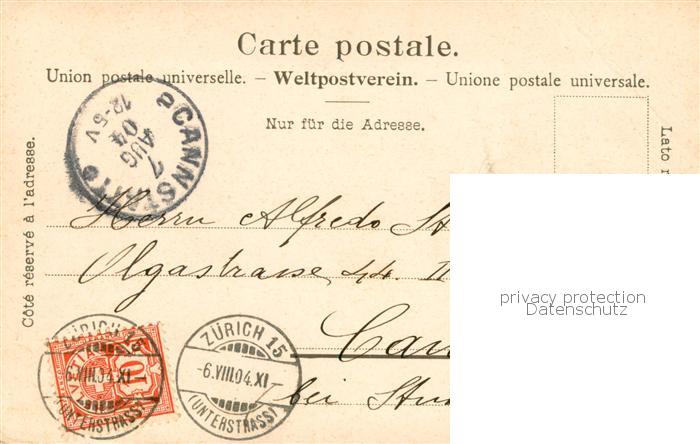 Carte postale.
Union postale universelle. – Weltpostverein. – Unione postale universale.
Nur für die Adresse.
Côté réservé à l'adresse.
Lato
CANNSTATT
7
AUG
04
12-5V
Herrn Alfredo St
Olgastrasse 44. II
Can
bei Stu
privacy protection
Datenschutz
ZÜRICH 15
-6.VIII.04.XI
(UNTERSTRASS)
10
ZÜRICH 15
-6.VIII.04.XI-
(UNTERSTRASS)